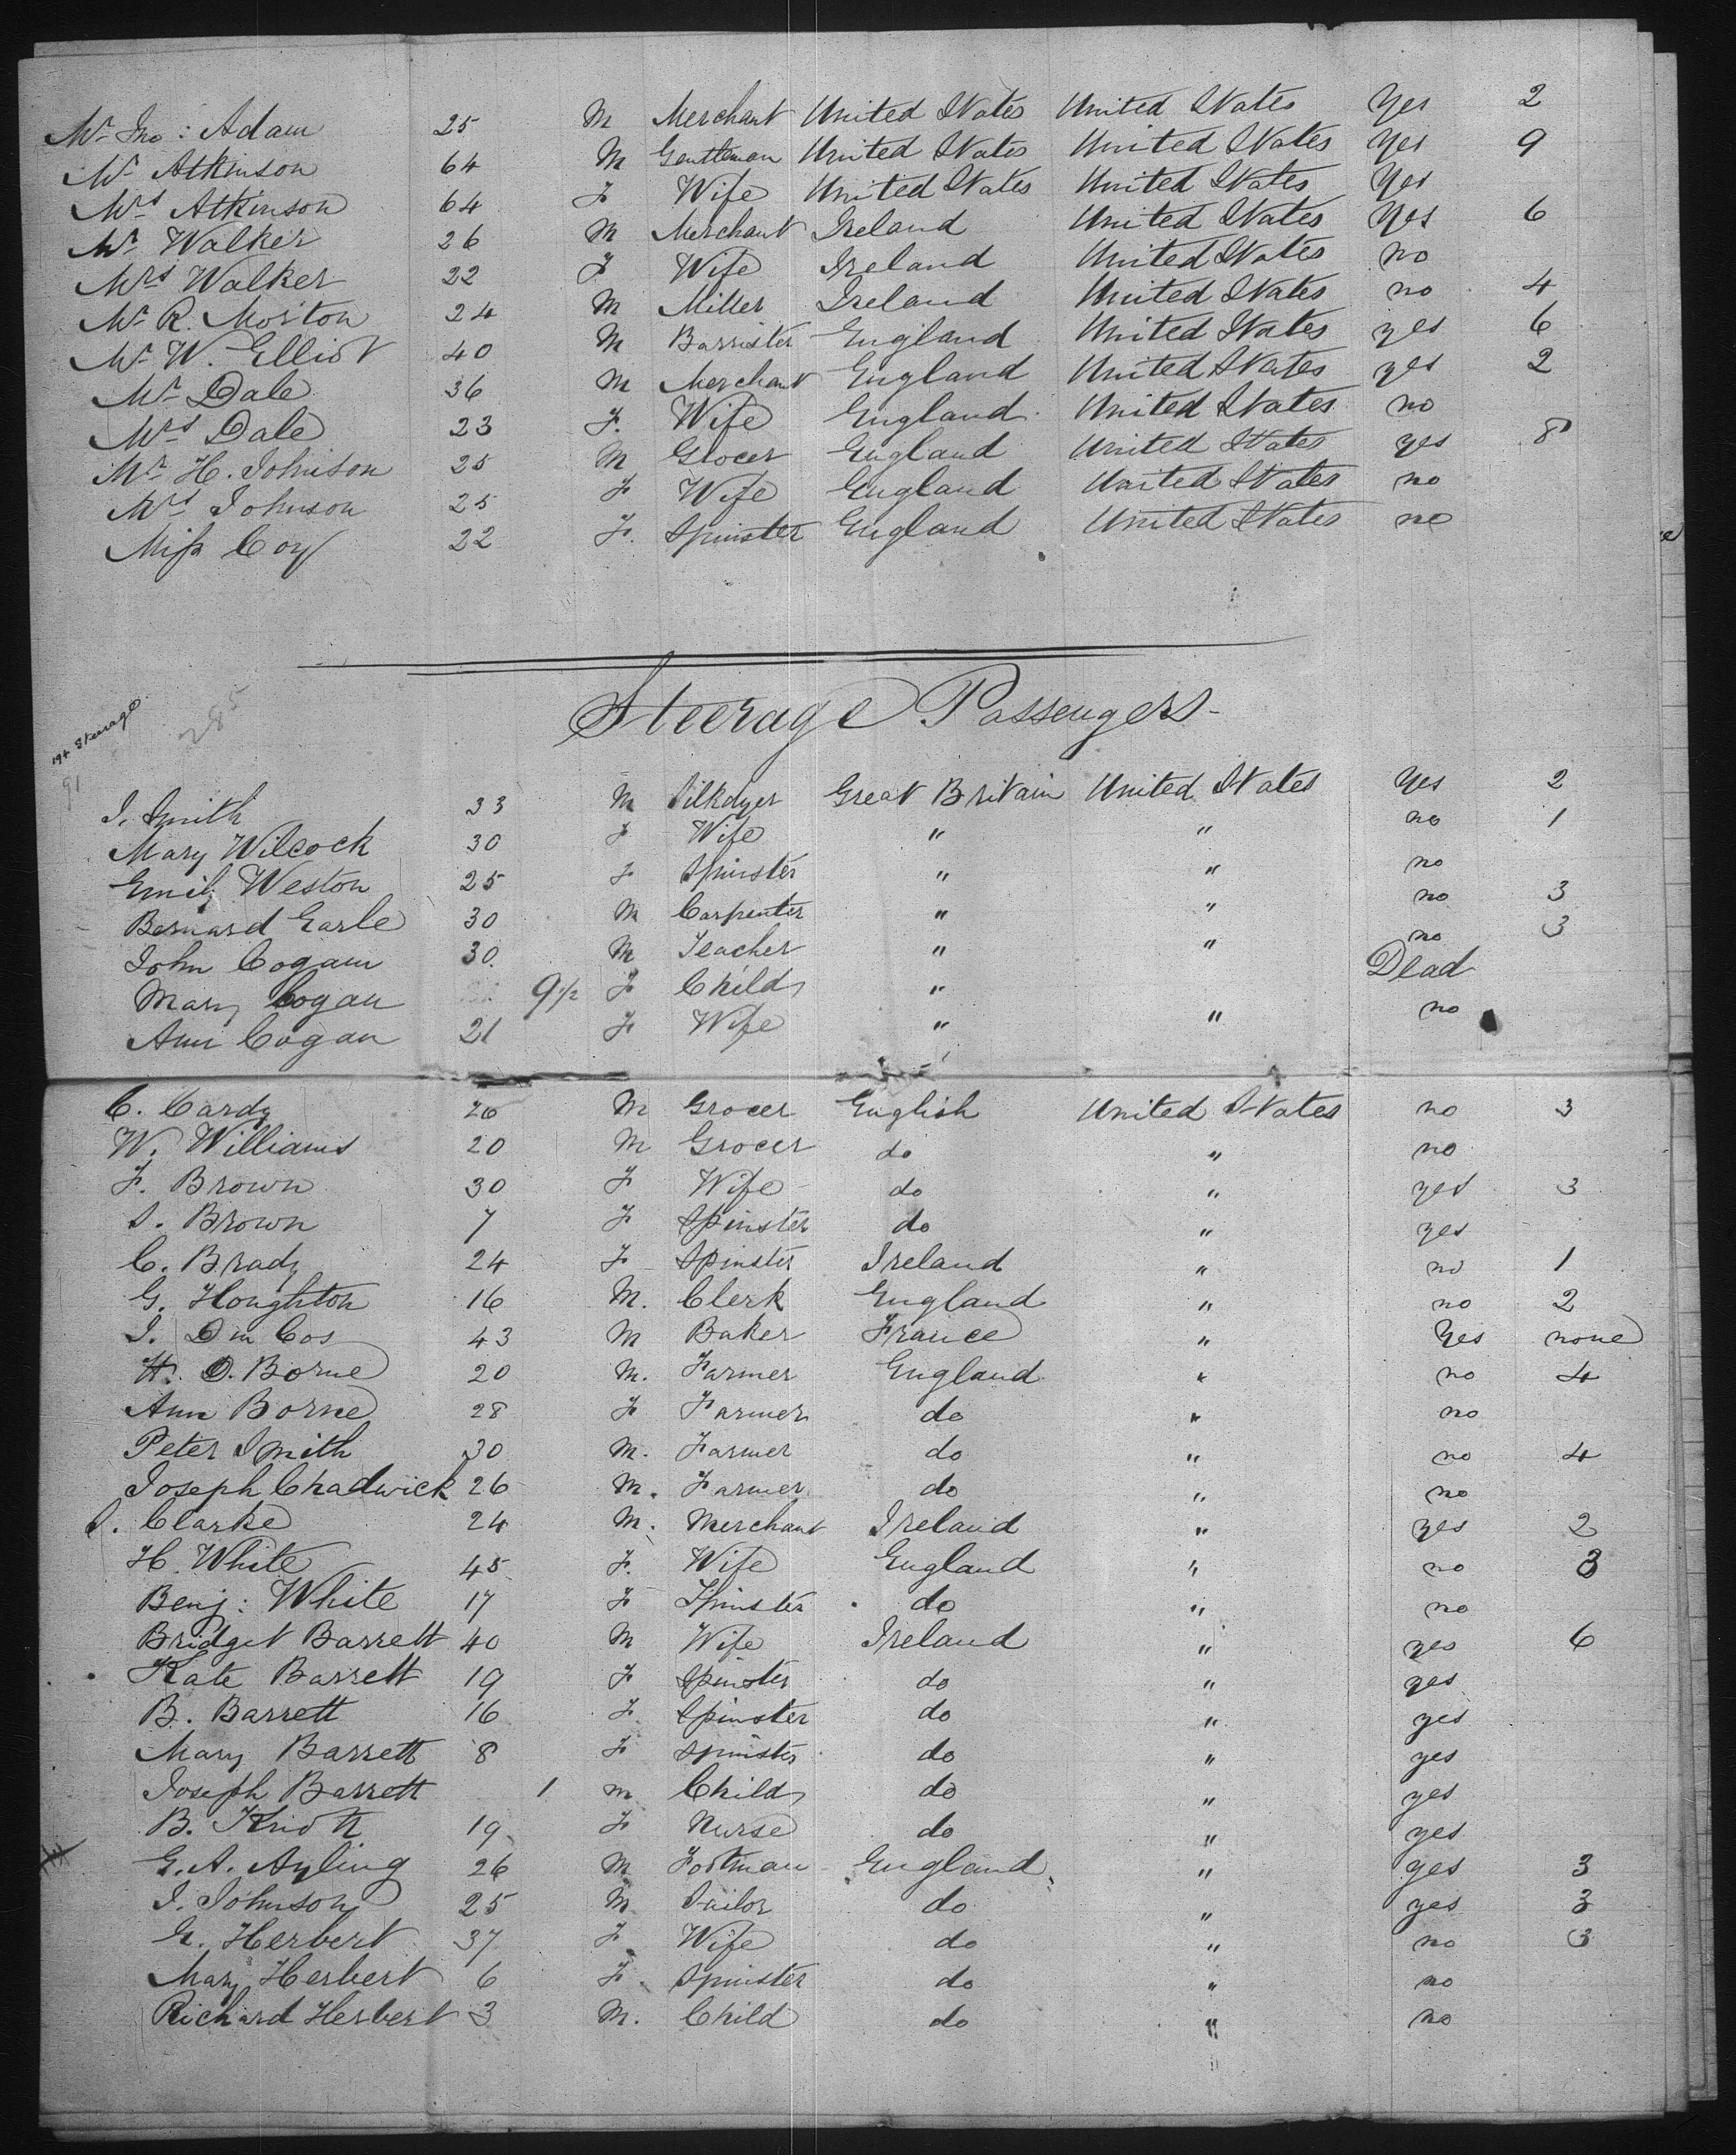 Mr Jno: Adam 25 M Merchant United States United States Yes 2
Mr Atkinson 64 M Gentleman United States United States Yes 9
Mrs Atkinson 64 F Wife United States United States Yes
Mr Walker 26 M Merchant Ireland United States Yes 6
Mrs Walker 22 F Wife Ireland United States no
Mr R. Morton 24 M Miller Ireland United States no 4
Mr W. Elliot 40 M Barrister England United States yes 6
Mr Dale 36 M Merchant England United States yes 2
Mrs Dale 23 F. Wife England United States no
Mr H. Johnson 25 M Grocer England United States yes 8
Mrs Johnson 25 F Wife England United States no
Miss Coy 22 F. Spinster England United States no
Steerage Passengers
194 Steerage
285
91
J. Smith 33 M Silkdyer Great Britain United States Yes 2
Mary Wilcock 30 F Wife " " no 1
Emily Weston 25 F Spinster " " no
Bernard Earle 30 M Carpenter " " no 3
John Cogan 30 M Teacher " " no 3
Mary Cogan 9½ F Child " Dead
Ann Cogan 21 F Wife " " no
C. Cardy 26 M Grocer English United States no 3
W. Williams 20 M Grocer do " no
F. Brown 30 F Wife do " yes 3
S. Brown 7 F Spinster do " yes
C. Brady 24 F Spinster Ireland " no 1
G. Houghton 16 M. Clerk England " no 2
J. Du Cos 43 M Baker France " Yes none
H. O. Borne 20 M. Farmer England " no 4
Ann Borne 28 F Farmer do " no
Peter Smith 30 M. Farmer do " no 4
Joseph Chadwick 26 M. Farmer do " no
S. Clarke 24 M. Merchant Ireland " yes 2
H. White 45 F. Wife England " no 3
Benj: White 17 F Spinster do " no
Bridget Barrett 40 M Wife Ireland " yes 6
Kate Barrett 19 F Spinster do " yes
B. Barrett 16 F Spinster do " yes
Mary Barrett 8 F Spinster do " yes
Joseph Barrett 1 m Child do " yes
B. 19 F Nurse do " yes
G. A. Ayling 26 M Footman England " yes 3
J. Johnson 25 M Sailor do " yes 3
G. Herbert 37 F Wife do " no 3
Mary Herbert 6 F. Spinster do " no
Richard Herbert 3 M. Child do " no